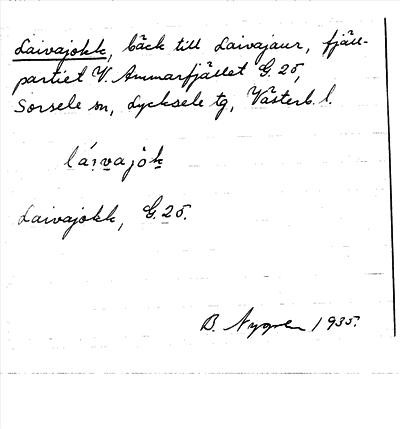 Laivajokk, bäck till Laivajaur, fjäll-
partiet V. Ammarfjället G. 25,
Sorsele sn, Lycksele tg, Västerb. l.
láị̄vajȯk
Laivajokk, G. 25.
B. Nygren 1935.